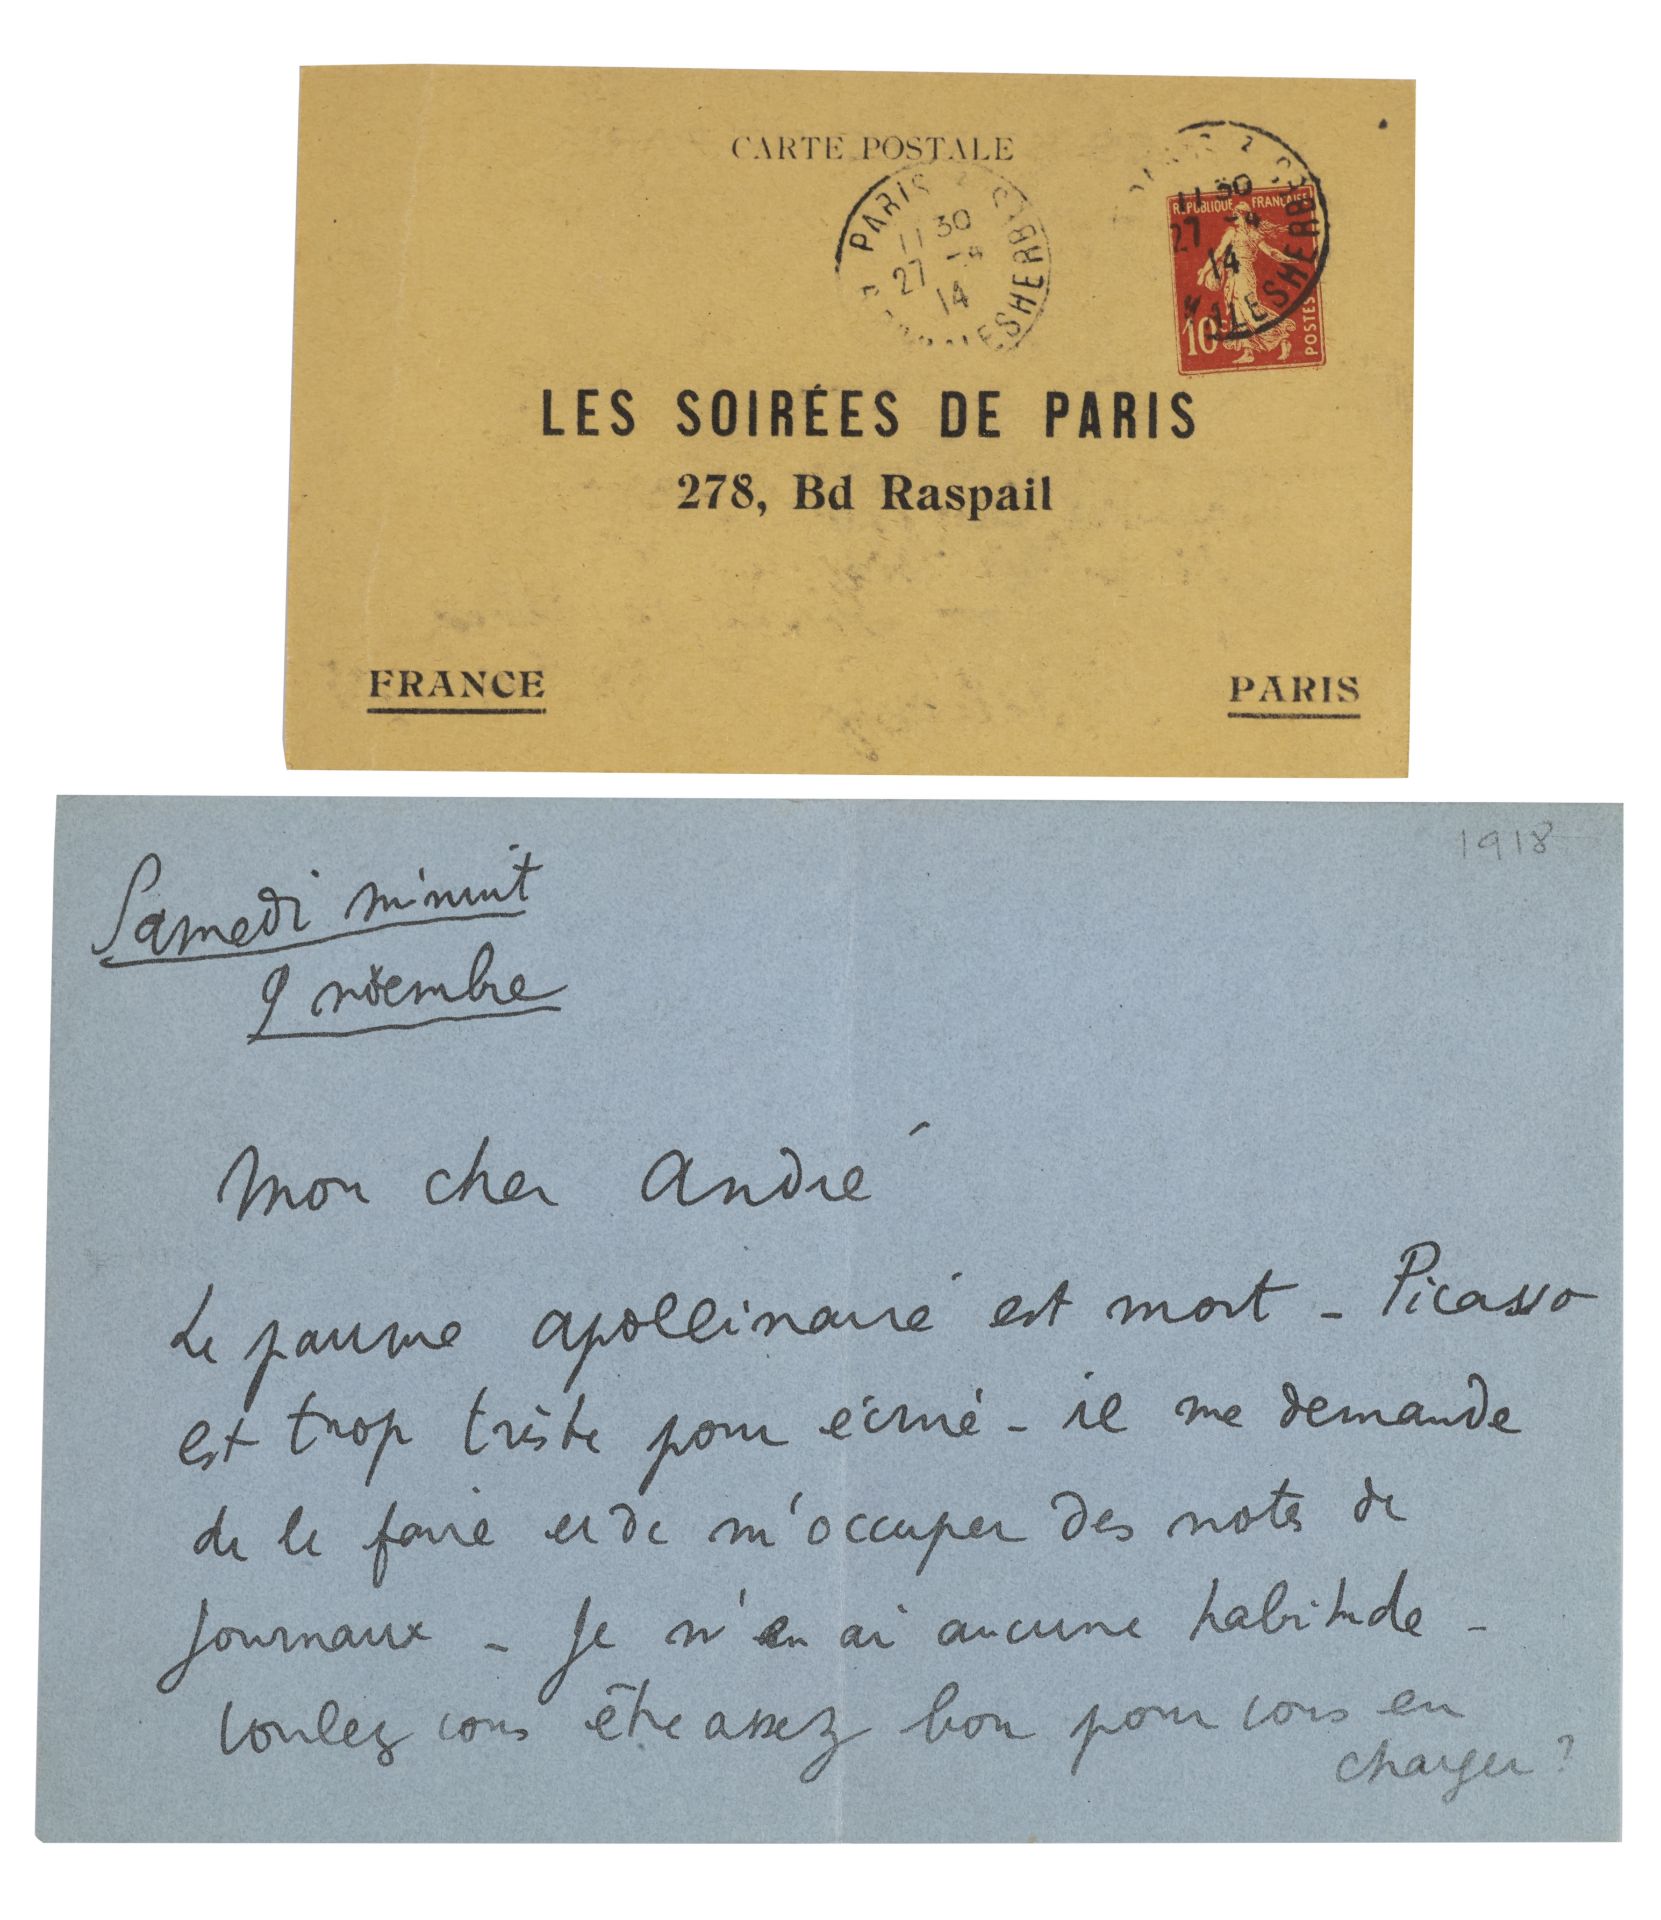 CARTE POSTALE
PARIS
11 30
27 -4
14
RÉPUBLIQUE FRANÇAISE
11 30
27 -4
14
10c
POSTES
LES SOIRÉES DE PARIS
278, Bd Raspail
FRANCE
PARIS
1918
Samedi minuit
9 novembre
Mon cher André
Le pauvre apollinaire est mort – Picasso
est trop triste pour écrire – il me demande
de le faire et de m'occuper des notes de
journaux – Je n'en ai aucune habitude –
voulez vous être assez bon pour vous en
charger ?